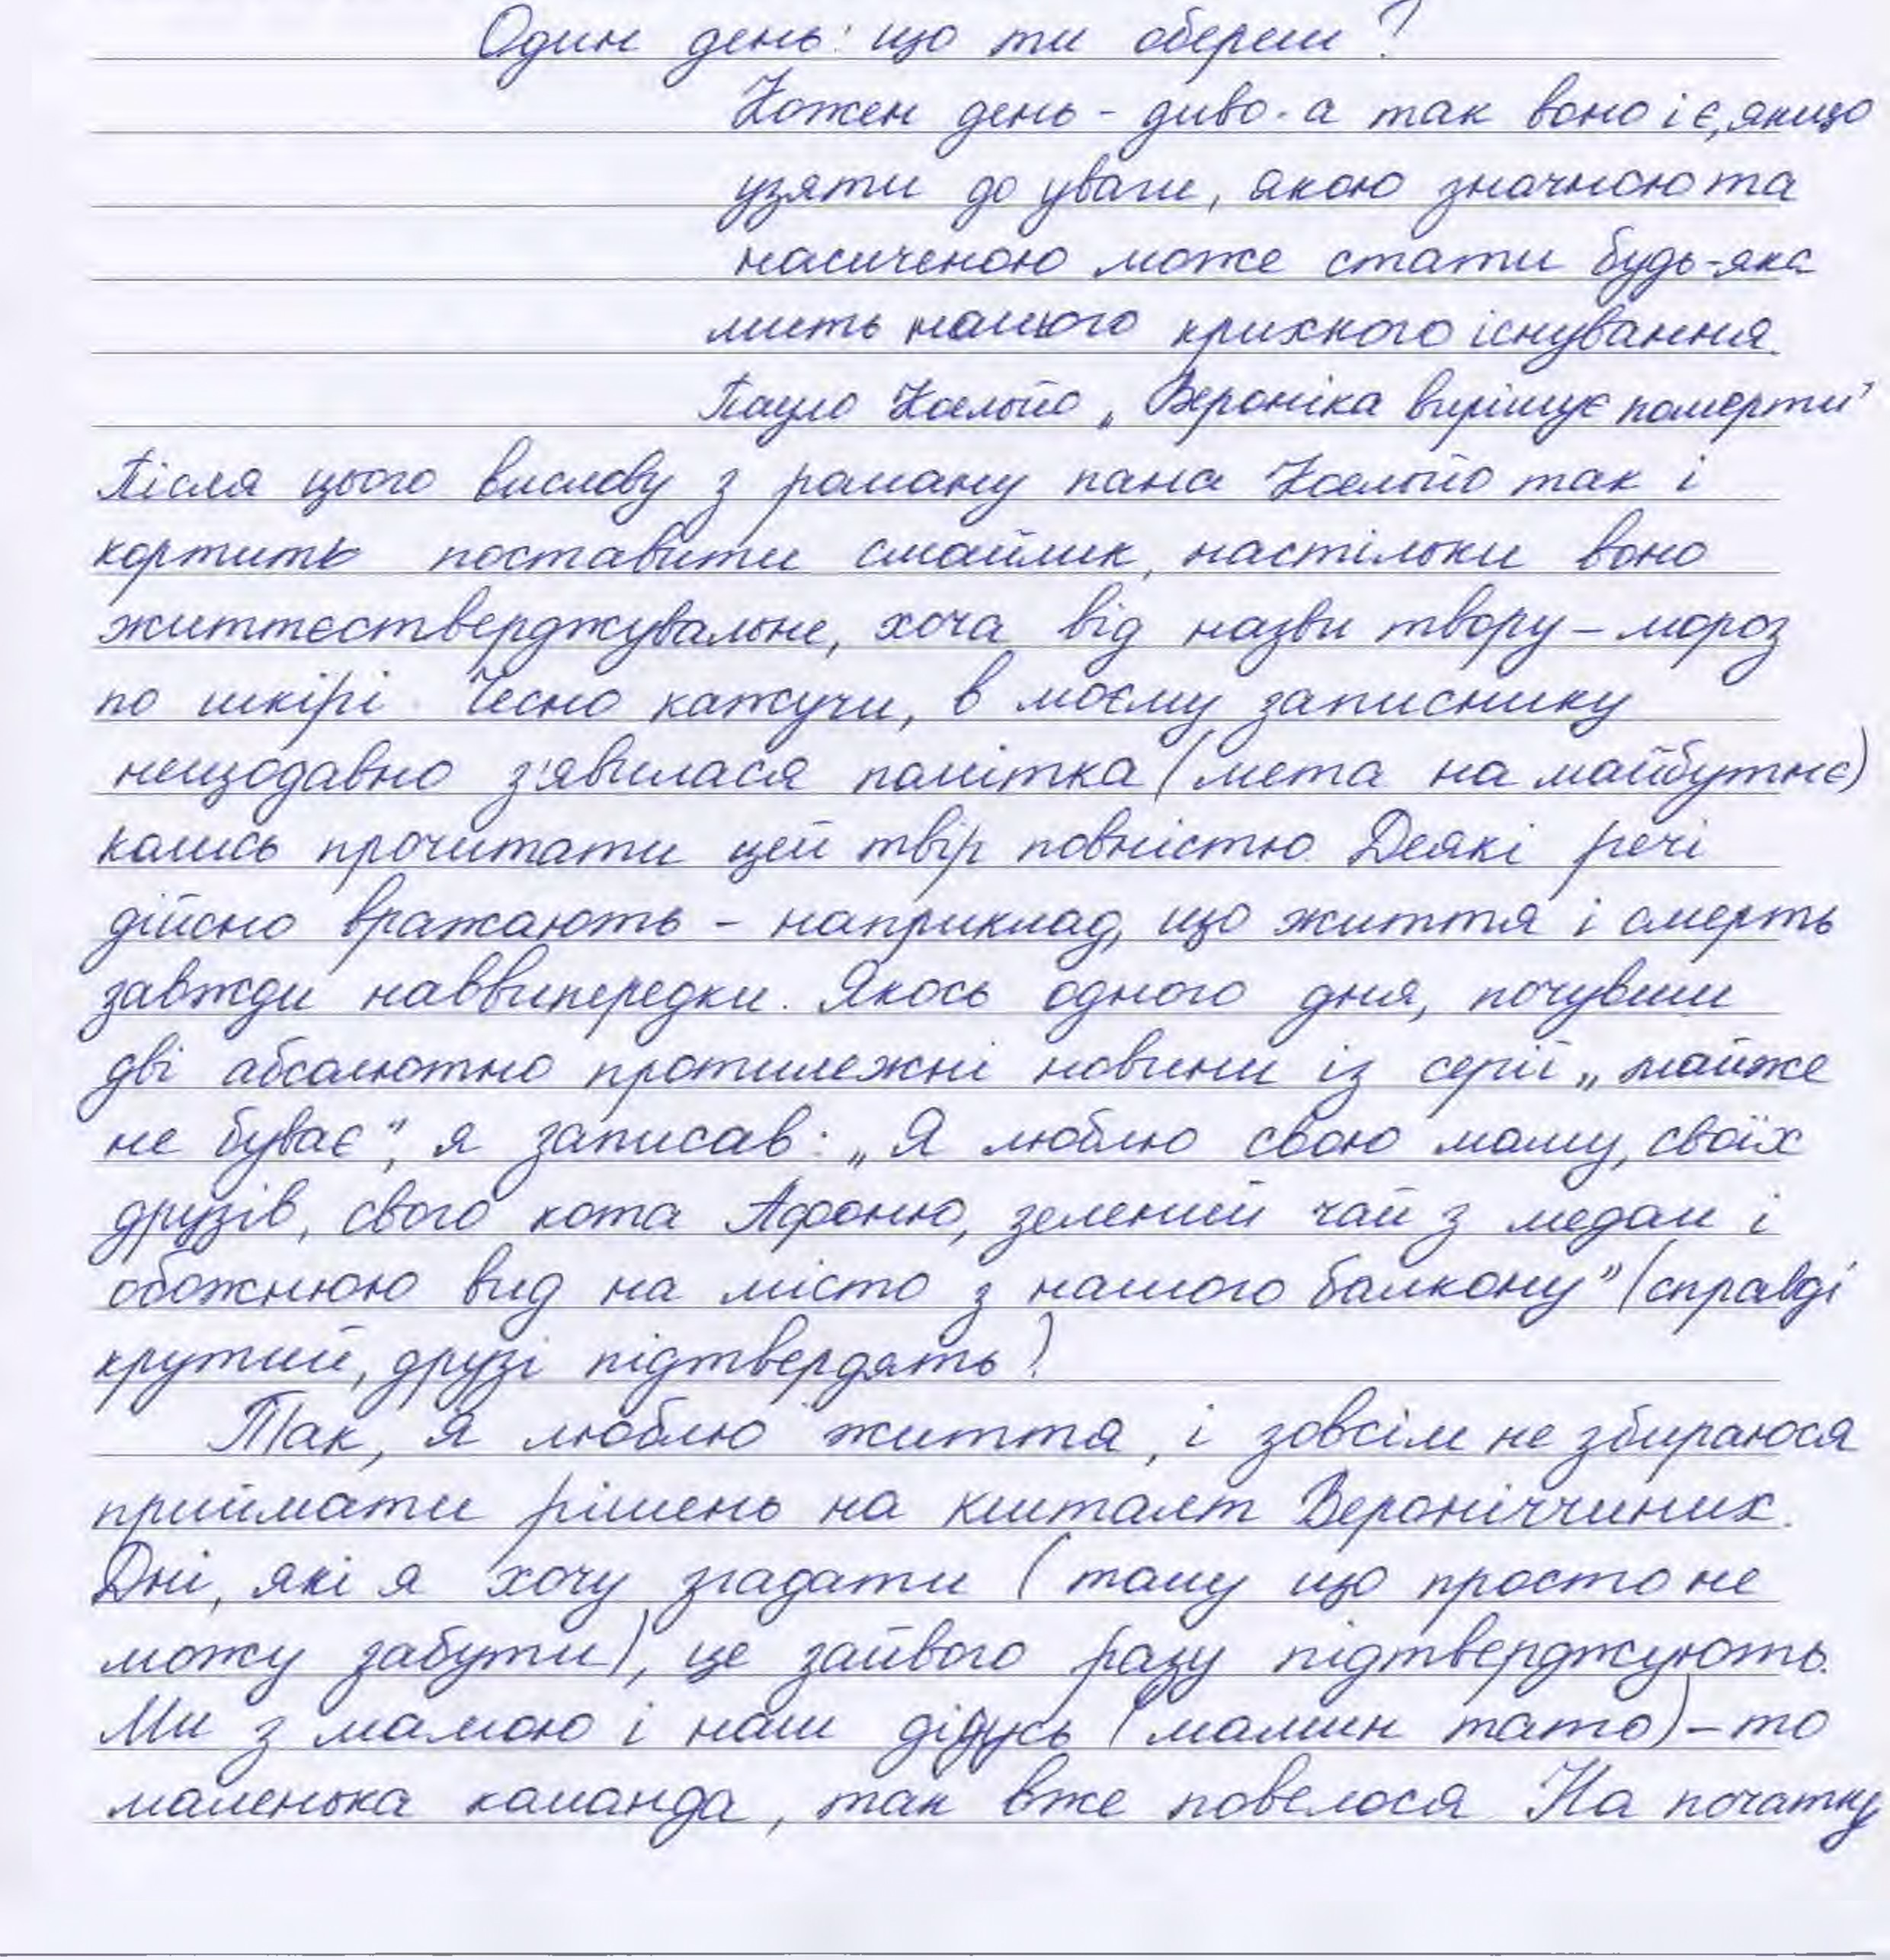 Один день: що ти обереш?
Кожен день - диво. а так воно і є, якщо
узяти до уваги, якою значною та
насиченою може стати будь-яка
мить нашого крихкого існування.
Пауло Коельйо „Вероніка вирішує померти"
Після цього вислову з роману пана Коельйо так і
кортить поставити смайлик, настільки воно
життєстверджувальне, хоча від назви твору – мороз
по шкірі. Чесно кажучи, в моєму записнику
нещодавно з'явилася помітка (мета на майбутнє)
колись прочитати цей твір повністю. Деякі речі
дійсно вражають – наприклад, що життя і смерть
завжди наввипередки. Якось одного дня, почувши
дві абсолютно протилежні новини із серії „майже
не буває", я записав: „Я люблю свою маму, своїх
друзів, свого кота Афоню, зелений чай з медом і
обожнюю вид на місто з нашого балкону" (справді
крутий, друзі підтвердять)
Так, я люблю життя, і зовсім не збираюся
приймати рішень на кшталт Вероніччиних.
Дні, які я хочу згадати (тому що просто не
можу забути), це зайвого разу підтверджують.
Ми з мамою і наш дідусь (мамин тато) – то
маленька команда, так вже повелося На початку